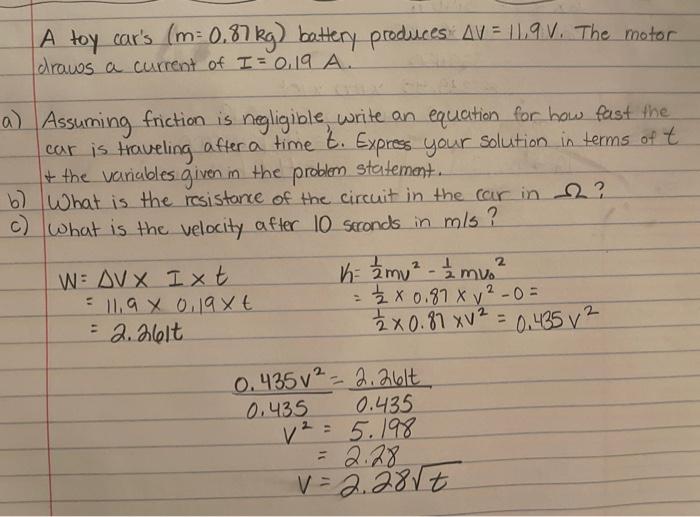 A toy car's (m= 0.87kg) battery produces ΔV = 11.9 V. The motor
draws a current of I = 0.19 A.
a) Assuming friction is negligible, write an equation for how fast the
car is traveling after a time t. Express your solution in terms of t
+ the variables given in the problem statement.
b) What is the resistance of the circuit in the car in Ω?
c) What is the velocity after 10 seconds in m/s?
W= ΔV x I x t
= 11.9 x 0.19 x t
= 2.261t
K= 1/2 mv² - 1/2 mv₀²
= 1/2 x 0.87 x v² - 0 =
1/2 x 0.87 x v² = 0.435 v²
0.435v² = 2.261t
0.435 0.435
v² = 5.198
= 2.28
v = 2.28√t